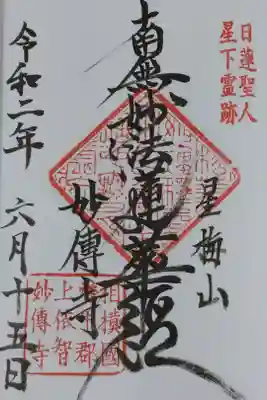 日蓮聖人
星下霊跡
星梅山
南無妙法蓮華経
妙傳寺
令和二年 六月十五日
相模國
上依智
妙傳寺